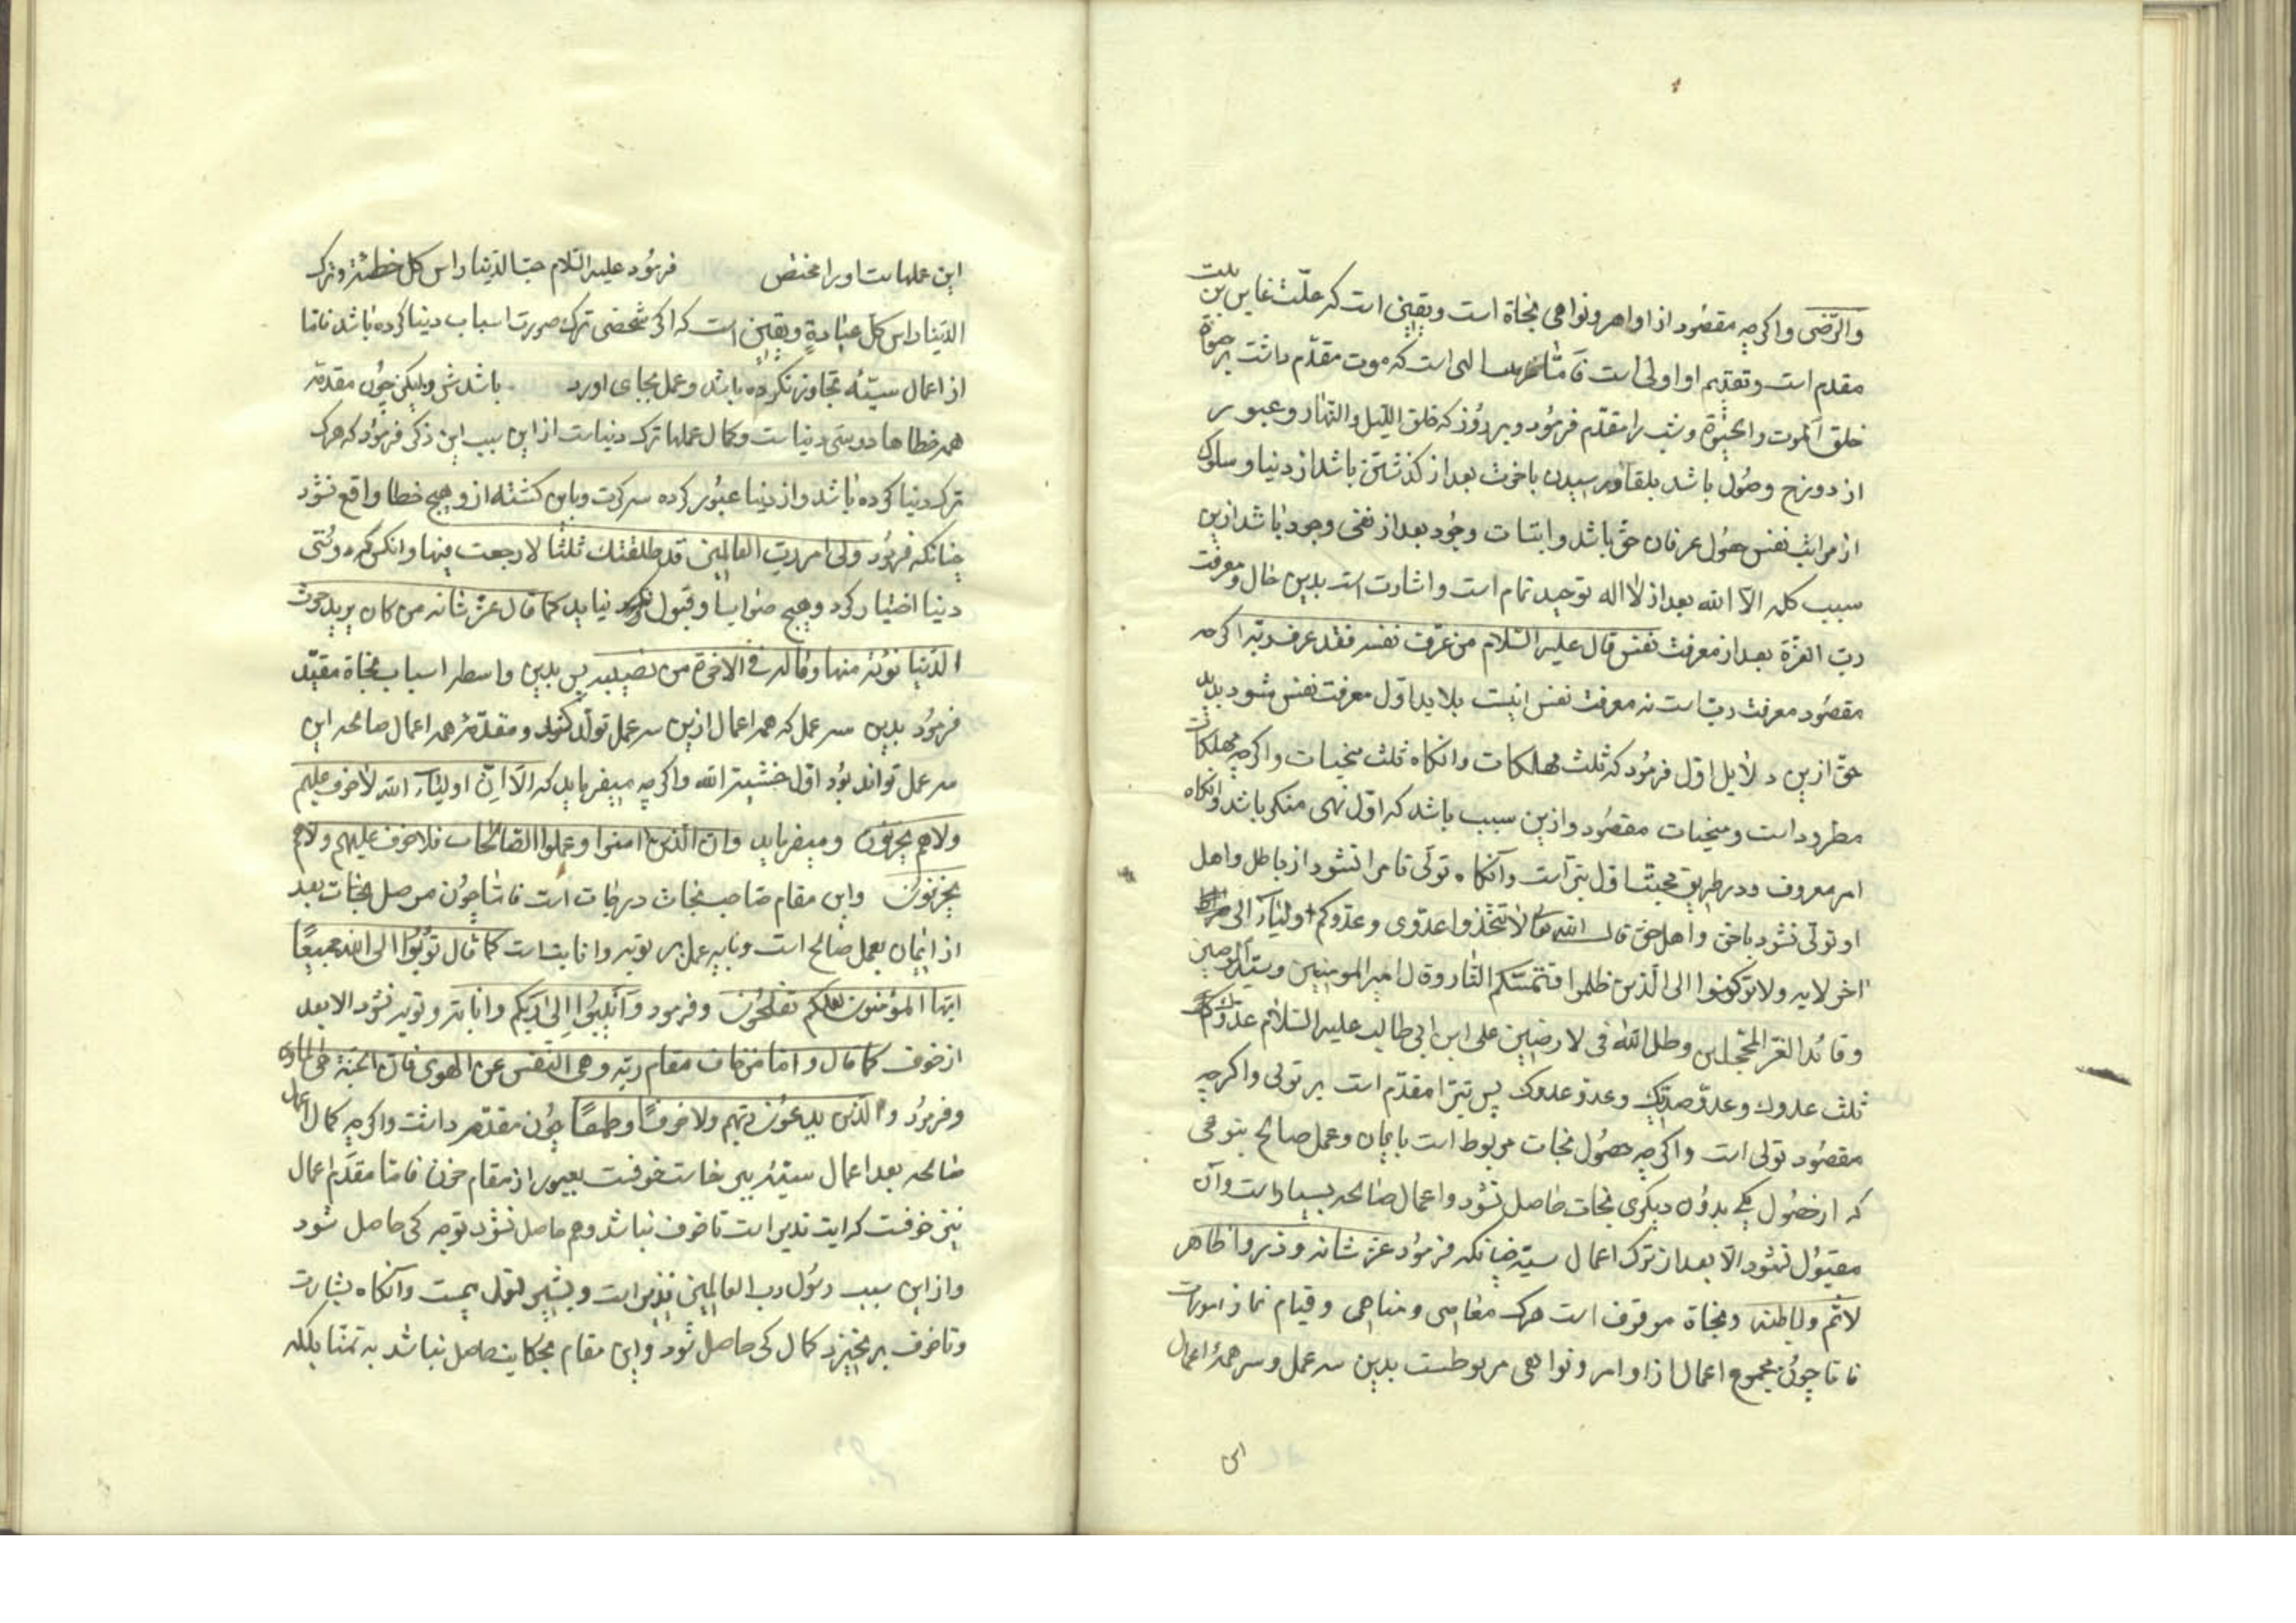 والرّضی واکرچه مقصُود از اوامر ونواهی نجاة است ویقین است که علّت غایی بدین
مقدم است وتقدیم او اولی است فامّا الهی است که موت مقدّم داشت بر حیوة
خلق الموت والحیٰوة وشب را مقدّم فرمُود وبر رُوز که خلق اللّیل والنّهار وعبور
از دوزخ وصُول باشد بلقا ورسیدن باخرت بعد از کذشتن باشد از دنیا وسلوک
از مراتب نفس حصُول عرفان حقّ باشد واثبات وجُود بعد از نفی وجود باشد ازین
سبب کلمه الّا الله بعد از لا اله توحید تمام است واشارت است بدین حال ومعرفت
ربّ العزّة بعد از معرفت نفس قال علیه السّلام من عرف نفسه فقد عرف ربّه اکرچه
مقصُود معرفت ربّ است نه معرفت نفس اول معرفت نفس شود
حقّ ازین دلایل اوّل فرمُود که ثلث مهلکات وانکاه ثلث منجیات واکرچه مهلکات
مطرود است ومنجیات مقصُود وازین سبب باشد که اوّل نهی منکر باشد وانکاه
امر معروف ودر طریق محبّت اوّل تبرّا است وآنکاه تولّی تا مرا نشود از باطل واهل
او تولّی نشود باحق واهل حق قال الله تعالی لا تتّخذوا عدوّی وعدوّکم اولیاء الی
اخر الایه ولا ترکنوا الی الّذین ظلموا فتمسّکم النّار وقال امیر المومنین وسیّد الوصیین
وقائد الغرّ المحجّلین وظل الله فی الارضین علی ابن ابی طالب علیه السّلام عدوّک
ثلث عدوک وعدوّ صدیقک وعدو عدوک پس تبرّا مقدّم است بر تولی واکرچه
مقصُود تولی است واکرچه حصُول نجات مربوط است بایمان وعمل صالح بنوعی
که از حصُول یکی بدوُن دیکری نجات حاصل نشود واعمال صالحه بسیار است وآن
مقبُول نشود الّا بعد از ترک اعمال سیّئه چنانکه فرمُود عزّ شانه وذروا ظاهر
الاثم وباطنه ونجاة موقوف است بترک معاصی ومناهی وقیام نماز
فامّا چون مجموع اعمال از اوامر ونواهی مربوطست بدین سه عمل وسر همهٔ اعمال
این
این عملهاست او را مختصّ فرمُود علیه السّلام حبّ الدّنیا راس کل خطیئة وترک
الدّنیا راس کلّ عبادةٍ ویقین است که اکر شخصی ترک صورت اسباب دنیا کرده باشد فامّا
از اعمال سیّئه تجاوز نکرده باشد وعمل بجای اورد باشدش ولیکن چُون مقدمّه
همه خطاها دوستی دنیاست وکمال عملها ترک دنیاست از این سبب این ذکر فرمُود که هرکه
ترک دنیا کرده باشد واز دنیا عبُور کرده کشته از و هیچ خطا واقع نشود
چنانکه فرمُود ولی امر ربّ العالمین قد طلّقتک ثلثا لا رجعت فیها وانکس که دوستی
دنیا اختیار کرد وهیچ صواب او قبول نیاید کما قال عزّ شانه من کان یرید حرث
الدّنیا نؤته منها وما له فی الاخرة من نصیب پس بدین واسطه اسباب نجاة مقیّد
فرمُود بدین سه عمل که همه اعمال ازین سه عمل تولّد کنُد ومقدّمهٔ همه اعمال صالحه این
سه عمل تواند بُود اوّل خشیة الله واکرچه میفرماید که الا انّ اولیاء الله لا خوف علیهم
ولا هم یحزنون ومیفرماید وان الّذین امنوا وعملوا الصّالحات فلا خوف علیهم ولا هم
یحزنون واین مقام صاحب نجات درجات است فامّا چُون موصل نجات بعد
از ایمان بعمل صالح است ونایب عمل بر توبه وانابت است کما قال توُبُوا الی الله جمیعًا
ایّها المؤمنون لعلّکم تفلحُون وفرمود وَأَنیبُوا إِلی رَبّکم وانابت وتوبه نشود الا بعد
از خوف کما قال وامّا من خاف مقام ربّه ونهی النّفس عن الهوی فان الجنّة هی الماوی
وفرمُود والّذین یدعوُن ربّهم خوفًا وطمعًا چُون مقدّم داشت واکرچه کمال اعمال
صالحه بعد اعمال سیّئه خوفست بعبور از مقام حزن فامّا مقدّم اعمال
نیز خوفست که نذیر است تا خوف نباشد وهم حاصل نشود توجه کی حاصل شود
واز این سبب رسُول رب العالمین نذیر است وبشیر وآنکاه بشارت
وتا خوف بر نخیزد کمال کی حاصل شود واین مقام بحکایت حاصل نباشد به تمنّا بلکه